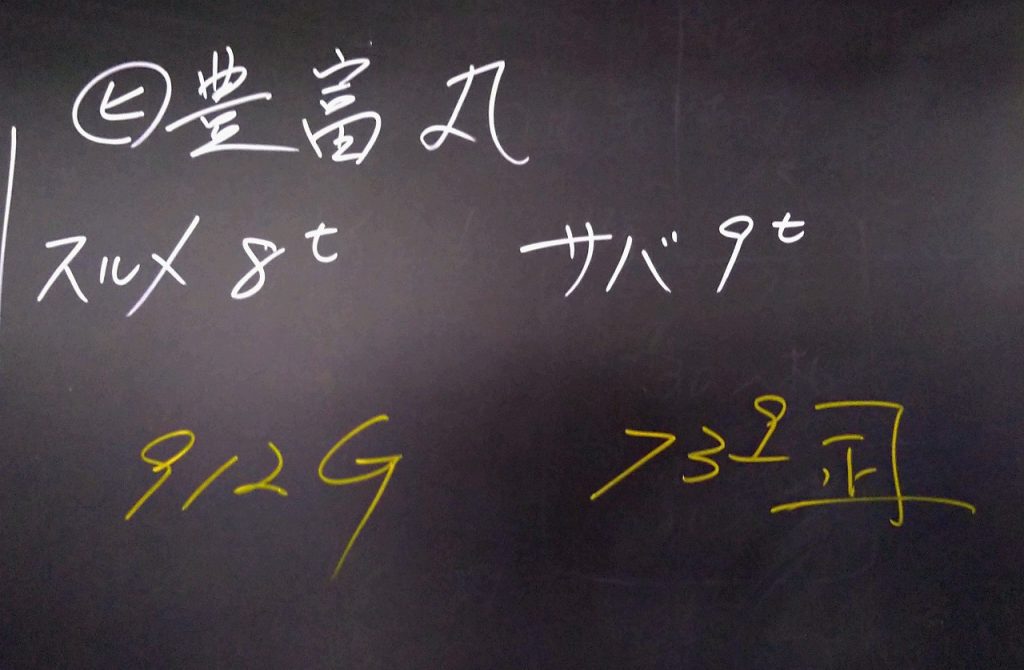 ㋪豊富丸
スルメ 8t サバ 9t
912G 739